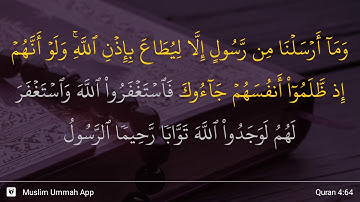 وَمَآ أَرْسَلْنَا مِن رَّسُولٍ إِلَّا لِيُطَاعَ بِإِذْنِ ٱللَّهِ ۚ وَلَوْ أَنَّهُمْ
إِذ ظَّلَمُوٓا۟ أَنفُسَهُمْ جَآءُوكَ فَٱسْتَغْفَرُوا۟ ٱللَّهَ وَٱسْتَغْفَرَ
لَهُمُ لَوَجَدُوا۟ ٱللَّهَ تَوَّابًا رَّحِيمًا ٱلرَّسُولُ
Muslim Ummah App
Quran 4:64